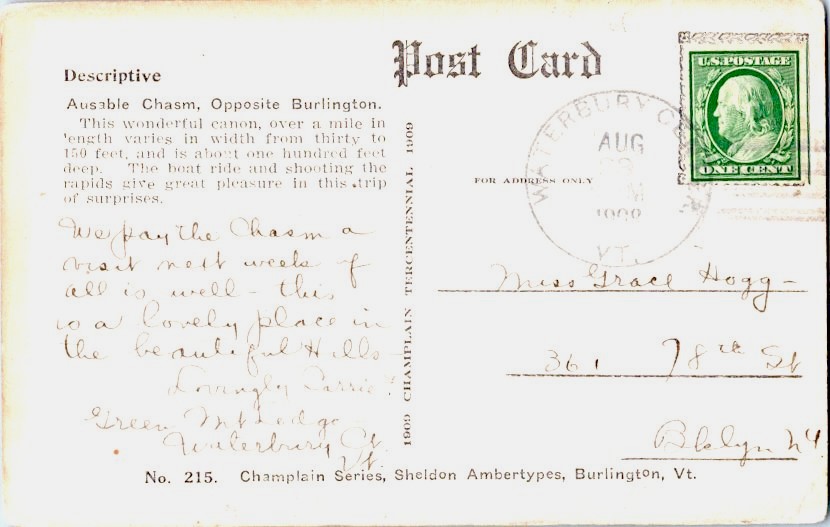 Descriptive
Ausable Chasm, Opposite Burlington.
This wonderful canon, over a mile in
length varies in width from thirty to
150 feet, and is about one hundred feet
deep. The boat ride and shooting the
rapids give great pleasure in this trip
of surprises.
We pay the Chasm a
visit next week if
all is well - this
is a lovely place in
the beautiful Hills
Lovingly Carrie
Green Mt
Waterbury Ct
Vt.
1909 CHAMPLAIN TERCENTENNIAL 1909
Post Card
FOR ADDRESS ONLY
WATERBURY
AUG
VT.
U.S. POSTAGE
ONE CENT
Miss Grace Hogg -
361 78th St
Bklyn N.Y.
No. 215. Champlain Series, Sheldon Ambertypes, Burlington, Vt.